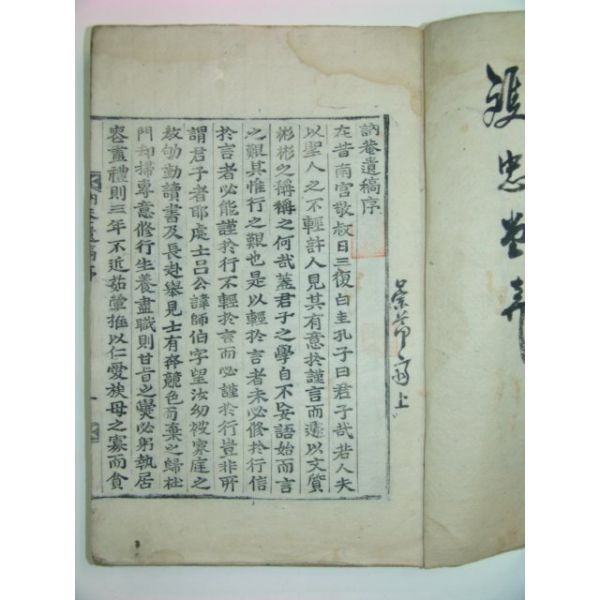 護忠堂弆
訥菴遺稿序
在昔南宫敬叔日三復白圭孔子曰君子哉若人夫
以聖人之不輕許人見其有意於謹言而遽以文質
彬彬之稱稱之何哉蓋君子之學自不妄語始而言
之艱其惟行之艱也是以輕於言者未必修於行信
於言者必能謹於行不輕於言而必謹於行豈非所
謂君子者耶處士吕公諱師伯字望汝幼被家庭之
教劬勤讀書及長赴舉見士有奔競色而棄之歸杜
門却掃專意修行生養盡職則甘旨之㸑必躬執居
喪盡禮則三年不近茹葷推以仁愛族母之寡而貧
訥菴遺稿序
一
上